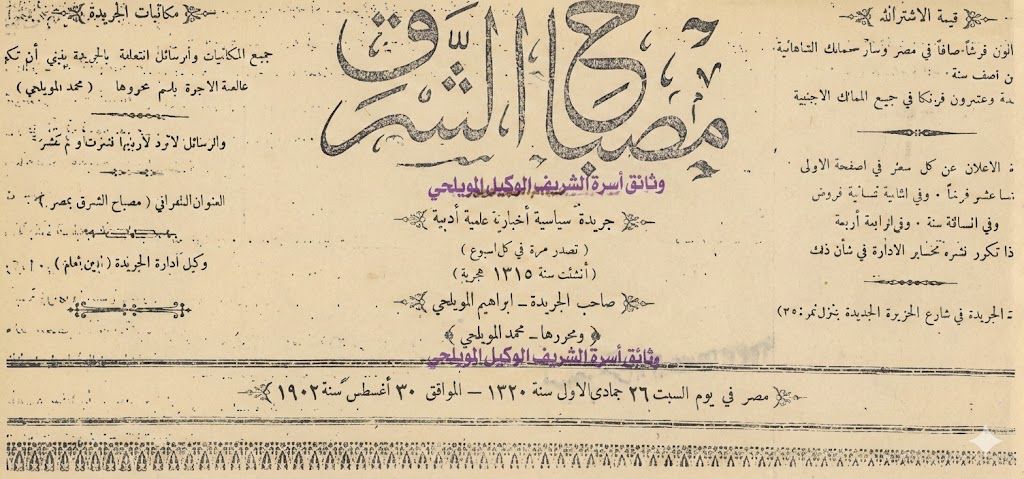 قيمة الاشتراك
قرشاً صافاً في مصر وسائر الممالك الشاهانية
نصف سنة
وعشرون فرنكا في جميع الممالك الاجنبية
الاعلان عن كل سطر في الصفحة الاولى
عشر قرشاً ٠ وفي الثانية ثمانية قروش
وفي الثالثة ستة ٠ وفي الرابعة أربعة
ذا تكرر نشره تخابر الادارة في شأن ذلك
الجريدة في شارع الجزيرة الجديدة بمنزل نمر : ٣٥
مصباح الشرق
وثائق أسرة الشريف الوكيل المويلحي
جريدة سياسية أخبارية علمية أدبية
( تصدر مرة في كل اسبوع )
( أنشئت سنة ١٣١٥ هجرية )
صاحب الجريدة ـ ابراهيم المويلحي
﴿ ومحررها ـ محمد المويلحي ﴾
وثائق أسرة الشريف الوكيل المويلحي
مكاتبات الجريدة
جميع المكاتبات والرسائل المتعلقة بالجريدة ينبغي أن تكو
خالصة الاجرة باسم محررها ( محمد المويلحي )
والرسائل لا ترد لأربابها نشرت أو لم تنشر
العنوان التلغرافي ( مصباح الشرق بمصر )
وكيل ادارة الجريدة ( أمين )
مصر في يوم السبت ٢٦ جمادى الاول سنة ١٣٢٠ — الموافق ٣٠ أغسطس سنة ١٩٠٢